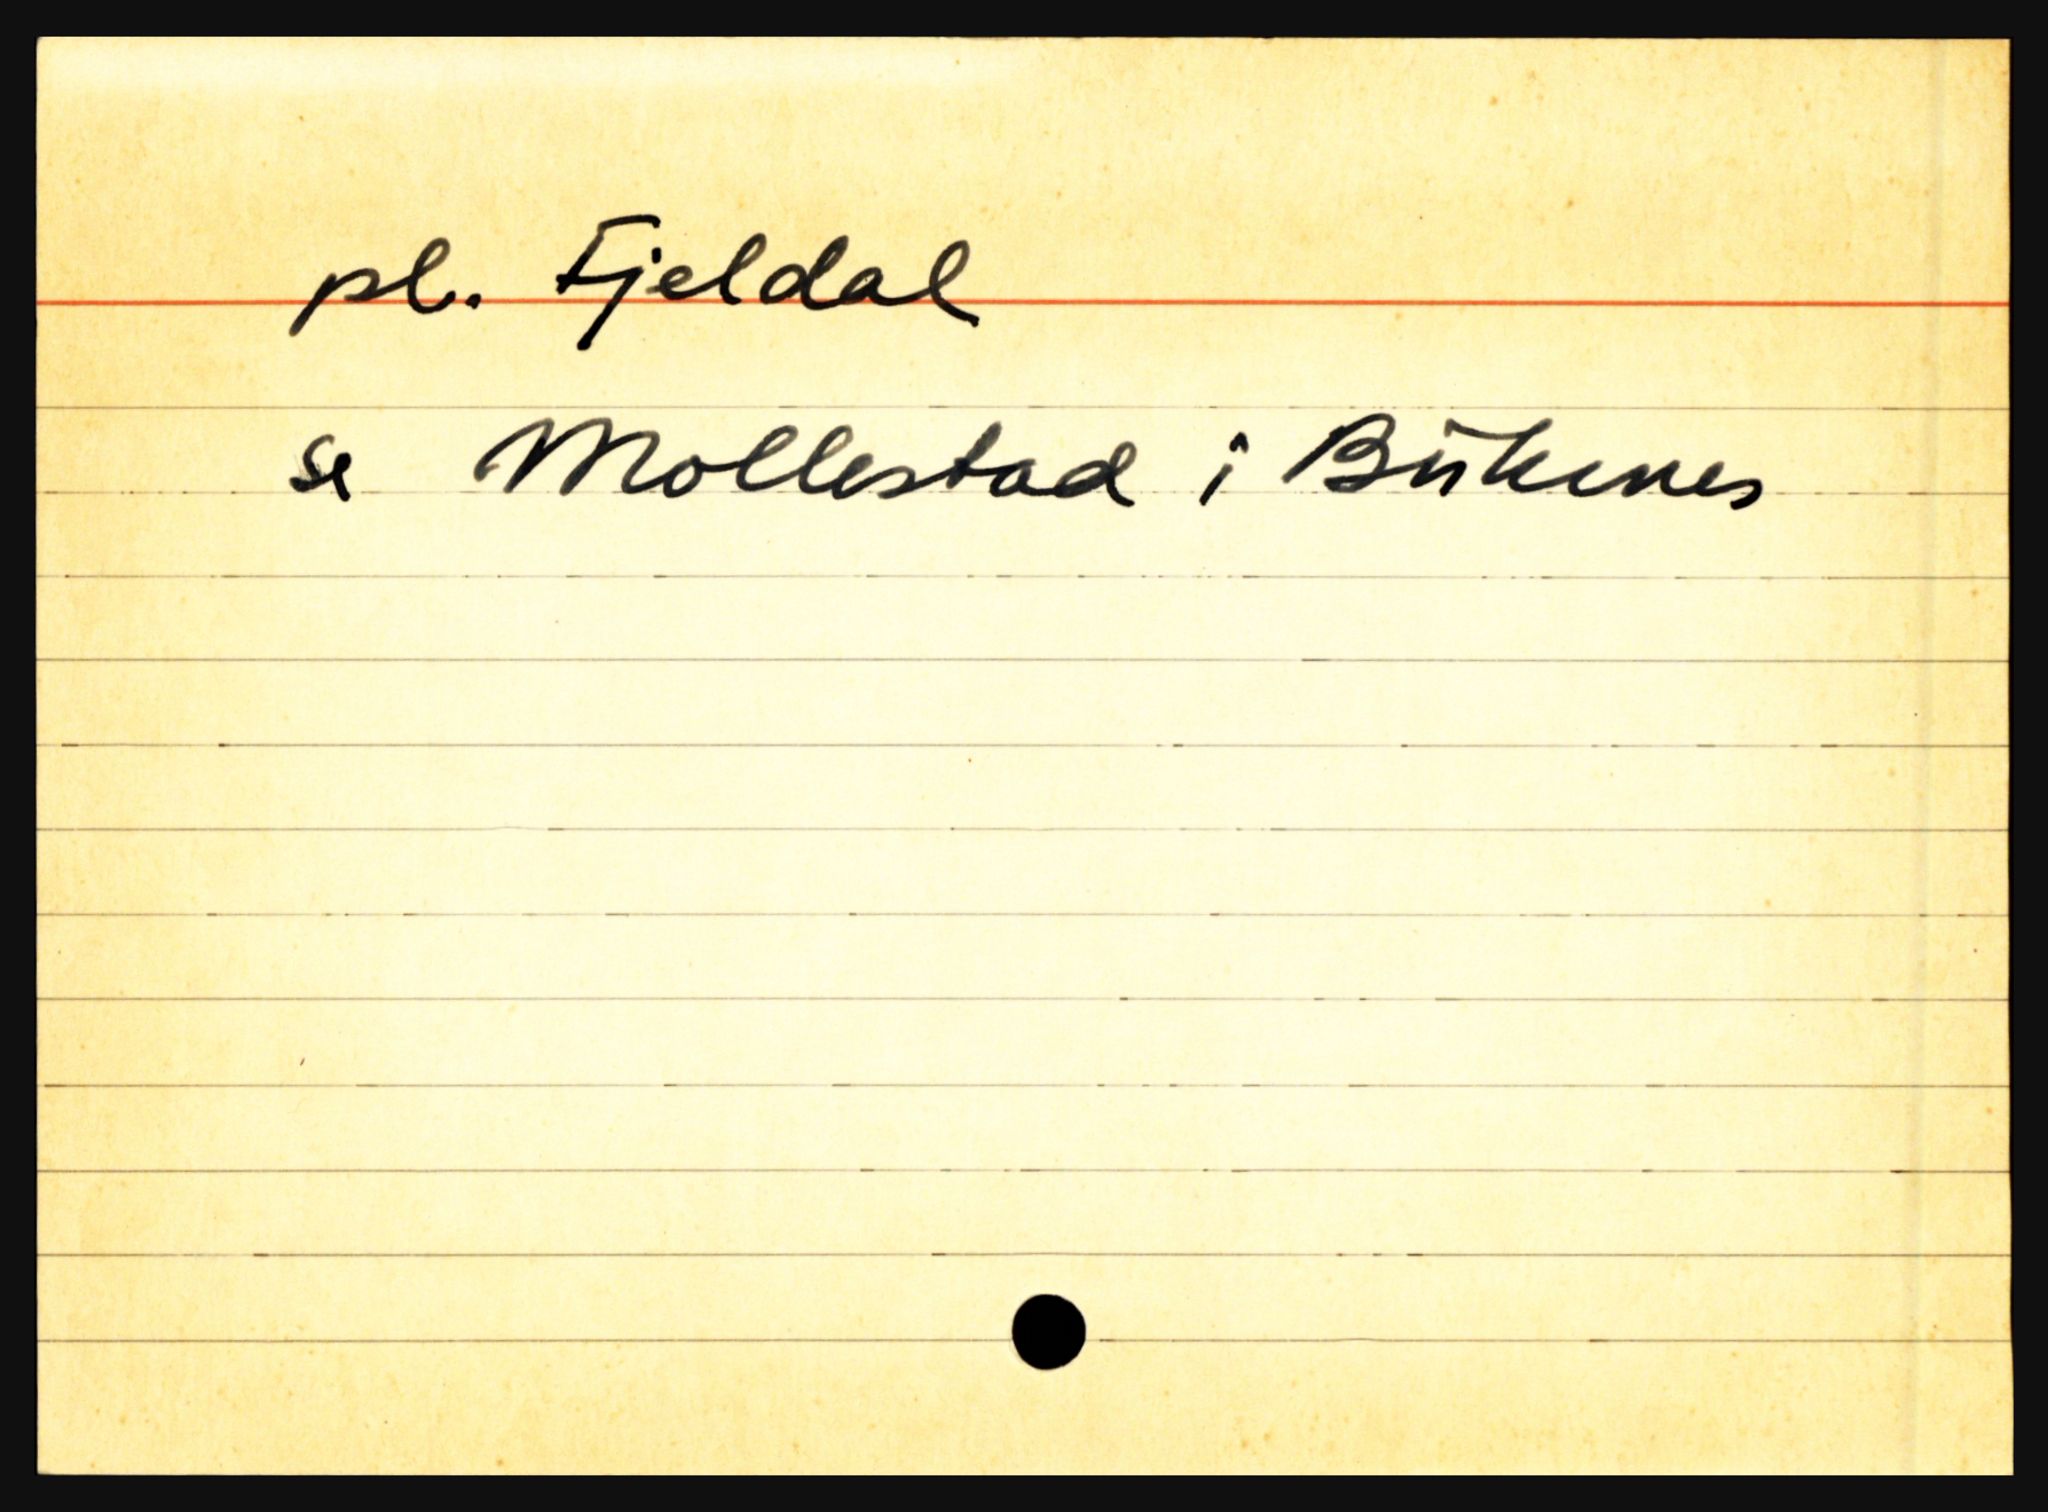 pl. Fjeldal
se Mollestad i Birkenes